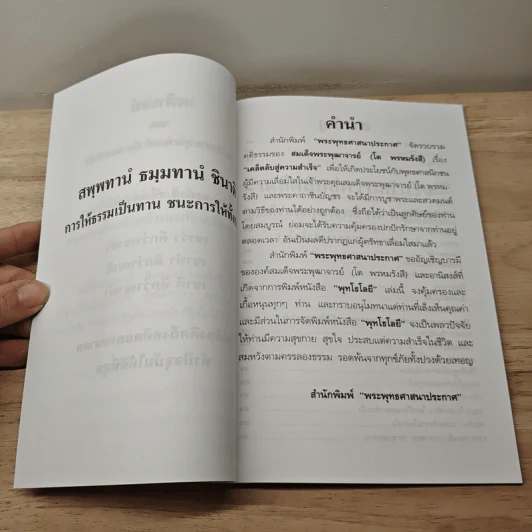 สพฺพทานํ ธมฺมทานํ ชินาติ
การให้ธรรมเป็นทาน ชนะการให้ทั้ง
คำนำ
สำนักพิมพ์ "พระพุทธศาสนาประกาศ" จัดรวบรวม
คติธรรมของ สมเด็จพระพุฒาจารย์ (โต พรหมรังสี) เรื่อง
"เคล็ดลับสู่ความสำเร็จ" เพื่อให้เกิดประโยชน์กับพุทธศาสนิกชน
ผู้มีความเลื่อมใสในเจ้าพระคุณสมเด็จพระพุฒาจารย์ (โต พรหม-
รังสี) และพระคาถาชินบัญชร จะได้มีการบูชาพระและสวดมนต์
ตามวิธีของท่านได้อย่างถูกต้อง ซึ่งถือได้ว่าเป็นลูกศิษย์ของท่าน
โดยสมบูรณ์ ย่อมจะได้รับความคุ้มครองปกปักรักษาจากท่านอยู่
ตลอดเวลา อันเป็นผลดีปรากฏแก่ผู้ศรัทธาเลื่อมใสมาแล้ว
สำนักพิมพ์ "พระพุทธศาสนาประกาศ" ขออัญเชิญบารมี
ขององค์สมเด็จพระพุฒาจารย์ (โต พรหมรังสี) และอานิสงส์ที่
เกิดจากการพิมพ์หนังสือ "พุทโธโลยี" เล่มนี้ จงคุ้มครองและ
เกื้อหนุนทุกๆ ท่าน และกราบอนุโมทนาแด่ท่านที่เล็งเห็นคุณค่า
และมีส่วนในการจัดพิมพ์หนังสือ "พุทโธโลยี" จงเป็นพลวปัจจัย
ให้ท่านมีความสุขกาย สุขใจ ประสบแต่ความสำเร็จในชีวิต และ
สมหวังตามครรลองธรรม รอดพ้นจากทุกข์ภัยทั้งปวงด้วยเทอญ
สำนักพิมพ์ "พระพุทธศาสนาประกาศ"